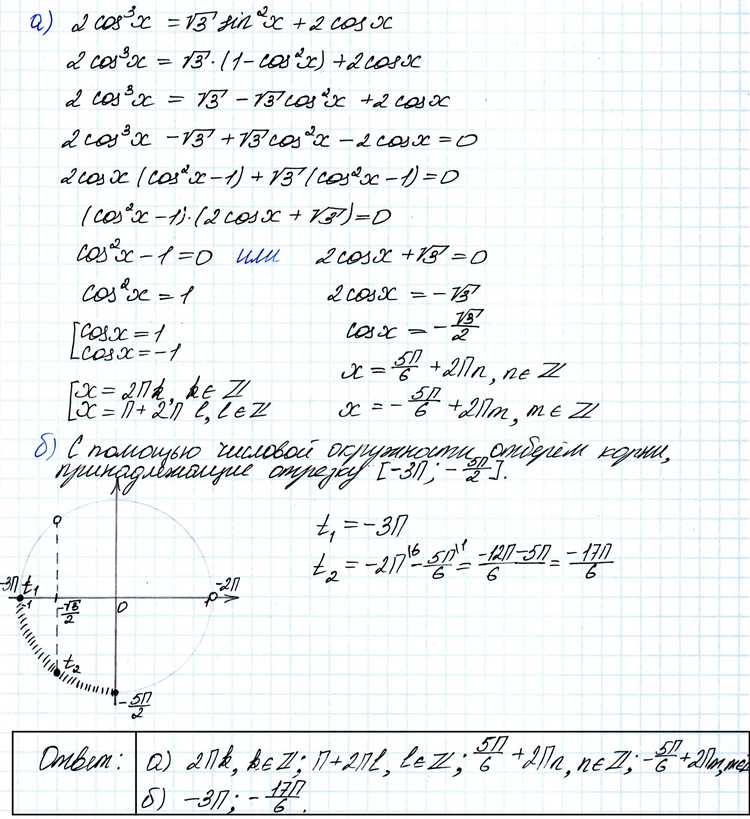 а) 2cos³x = √3 sin²x + 2cosx
2cos³x = √3·(1-cos²x) + 2cosx
2cos³x = √3 - √3cos²x + 2cosx
2cos³x - √3 + √3cos²x - 2cosx = 0
2cosx(cos²x-1) + √3(cos²x-1) = 0
(cos²x-1)·(2cosx + √3) = 0
cos²x - 1 = 0 или 2cosx + √3 = 0
cos²x = 1
[cosx = 1
[cosx = -1
[x = 2πk, k∈ℤ
[x = π + 2πl, l∈ℤ
2cosx = -√3
cosx = -√3/2
x = 5π/6 + 2πn, n∈ℤ
x = -5π/6 + 2πm, m∈ℤ
б) С помощью числовой окружности отберём корни,
принадлежащие отрезку [-3π; -5π/2].
-3π t₁
-1
-√3/2
0
-2π
t₂
-5π/2
t₁ = -3π
t₂ = -2π\6 - 5π\1/6 = -12π-5π/6 = -17π/6
Ответ: а) 2πk, k∈ℤ; π+2πl, l∈ℤ; 5π/6 + 2πn, n∈ℤ; -5π/6 + 2πm, m∈
б) -3π; -17π/6.